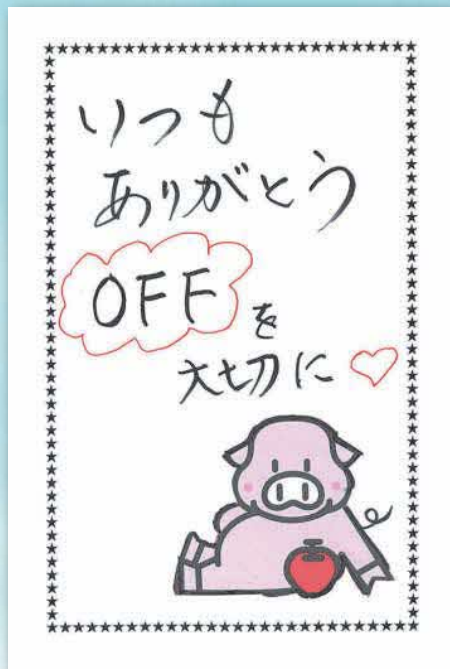 いつも
ありがとう
OFFを
大切に♡